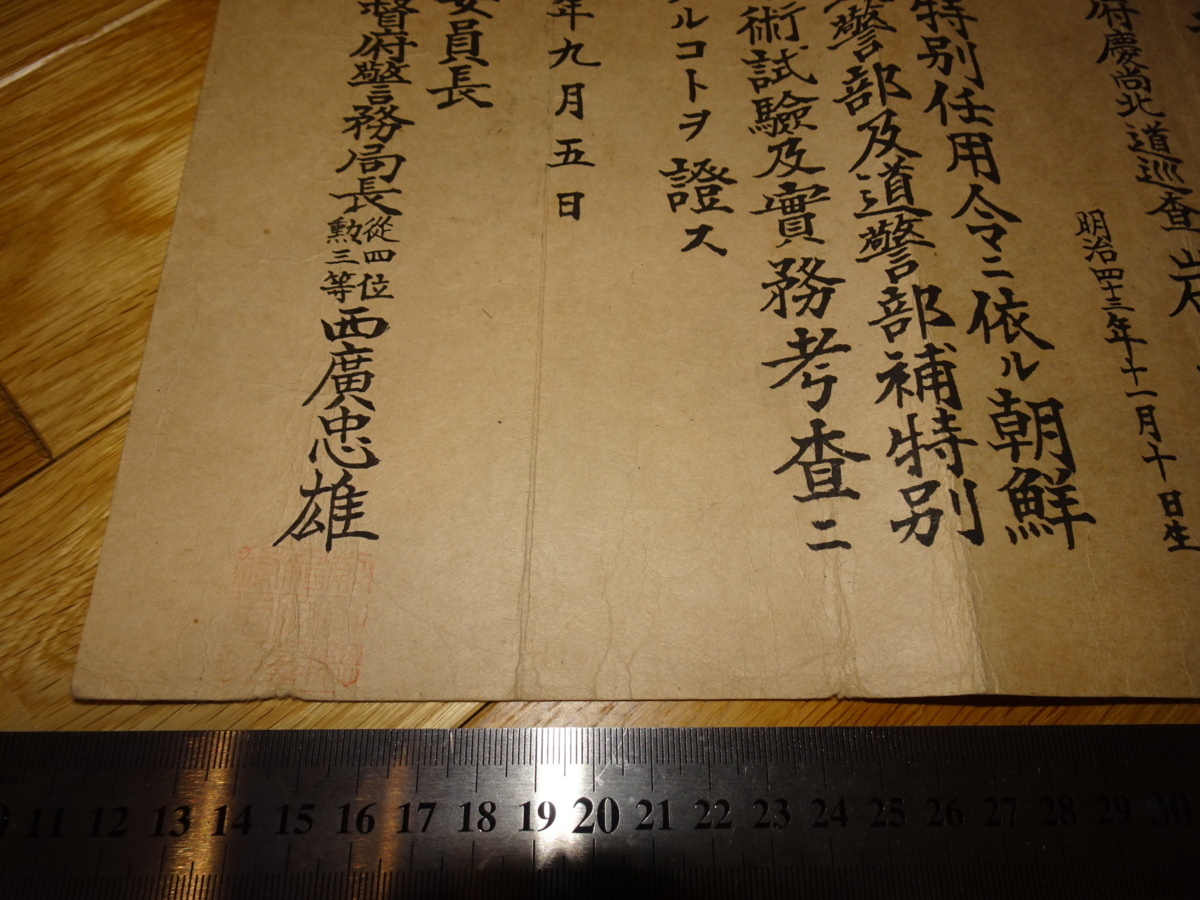 府慶尚北道巡査
明治四十三年十一月十日生
特別任用令ニ依ル朝鮮
警部及道警部補特別
術試驗及實務考査ニ
ルコトヲ證ス
年九月五日
委員長
督府警務局長從四位勲三等西廣忠雄
11 12 13 14 15 16 17 18 19 20 21 22 23 24 25 26 27 28 29 30